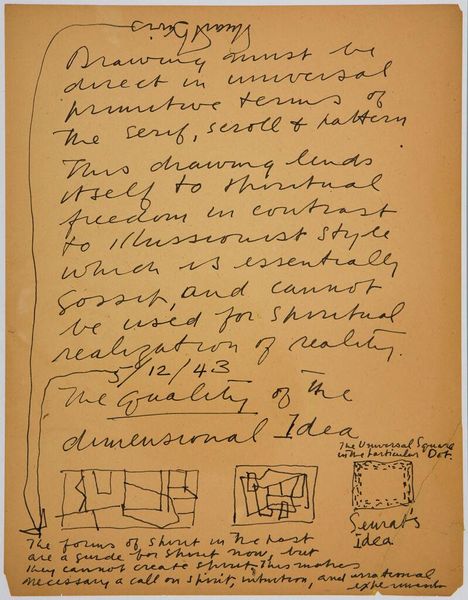 Stuart Davis
Drawing must be
direct in universal
primitive terms of
the serif, scroll & pattern
This drawing lends
itself to spiritual
freedom in contrast
to illussionist style
which is essentially
gossip, and cannot
be used for spiritual
realization of reality.
5/12/43
The quality of the
dimensional Idea
The Universal Square
in the particular Dot.
Seurat's
Idea
The forms of Spirit in the past
are a guide for Spirit now, but
they cannot create spirit. This makes
necessary a call on spirit, intuition, and irrational
experiments